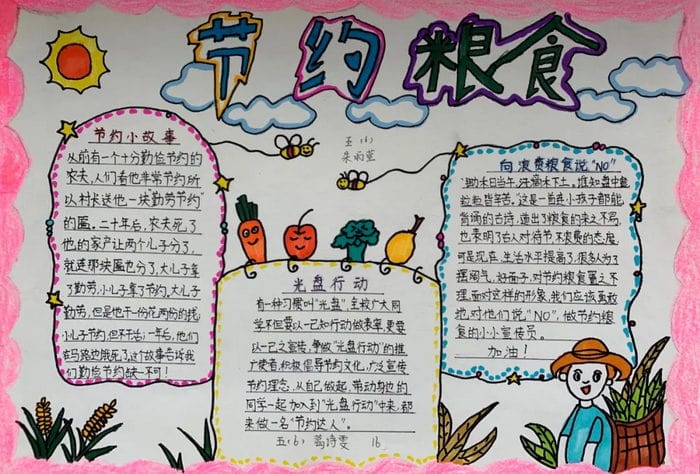 节约粮食
五(6)
朱雨萱
节约小故事
从前有一个十分勤俭节约的
农夫,人们看他非常节约所
以村长送他一块"勤劳节约"
的匾。二十年后,农夫死了
他的家产让两个儿子分了,
就连那块匾也分了,大儿子拿
了勤劳,小儿子拿了节约。大儿子
勤劳,但是他干一份花两份的钱;
小儿子节约,但不干活;一年后,他们
在马路边饿死了,这个故事告诉我
们勤俭节约缺一不可!
光盘行动
有一种习惯叫"光盘",全校广大同
学不但要以一己知行动做表率,更要
以一己之宣传,争做"光盘行动"的推
广使者,积极倡导节约文化,广泛宣传
节约理念,从自己做起,带动身边的
同学一起加入到"光盘行动"中来,都
来做一名"节约达人"。
五(6) 16
向浪费粮食说"NO"
锄禾日当午,汗滴禾下土。谁知盘中餐
粒粒皆辛苦。这是一首连小孩子都能
背诵的古诗,道出了粮食的来之不易,
也表明了古人对待节不浪费的态度,
可是现在,生活水平提高了,很多人为了
摆阔气,好面子,对节约粮食置之不
理,面对这样的形象,我们应该勇敢
地,对他们说"NO",做节约粮
食的小小宣传员。
加油!